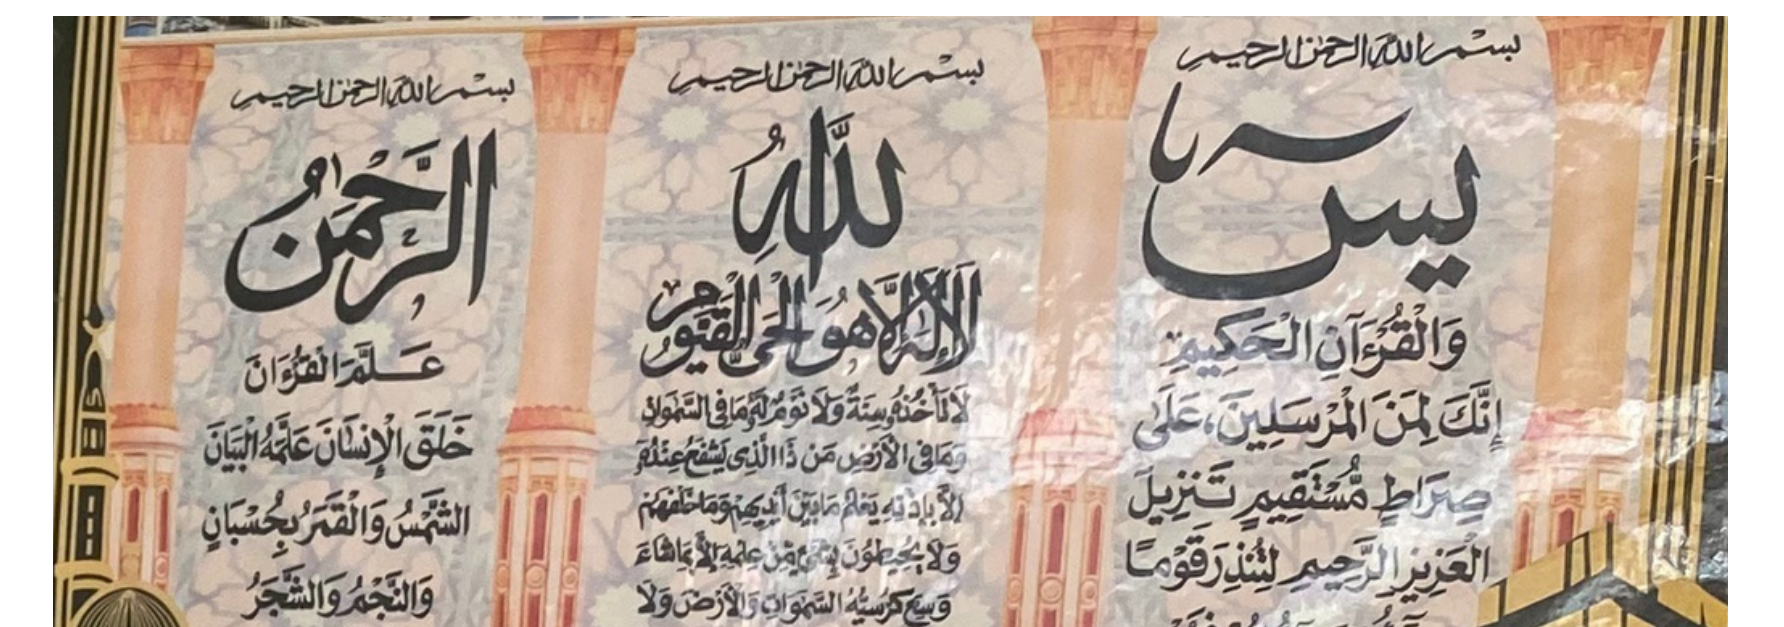 بسم الله الرحمن الرحيم
يس
وَالْقُرْءَآنِ الْحَكِيمِ
إِنَّكَ لَمِنَ الْمُرْسَلِينَ، عَلَىٰ
صِرَاطٍ مُّسْتَقِيمٍ تَنزِيلَ
الْعَزِيزِ الرَّحِيمِ لِتُنذِرَ قَوْمًا
بسم الله الرحمن الرحيم
اللَّهُ
لَا إِلَٰهَ إِلَّا هُوَ الْحَيُّ الْقَيُّومُ
لَا تَأْخُذُهُ سِنَةٌ وَلَا نَوْمٌ لَّهُ مَا فِي السَّمَٰوَاتِ
وَمَا فِي الْأَرْضِ مَن ذَا الَّذِي يَشْفَعُ عِندَهُ
إِلَّا بِإِذْنِهِ يَعْلَمُ مَا بَيْنَ أَيْدِيهِمْ وَمَا خَلْفَهُمْ
وَلَا يُحِيطُونَ بِشَيْءٍ مِّنْ عِلْمِهِ إِلَّا بِمَا شَاءَ
وَسِعَ كُرْسِيُّهُ السَّمَٰوَاتِ وَالْأَرْضَ وَلَا
بسم الله الرحمن الرحيم
الرَّحْمَٰنُ
عَلَّمَ الْقُرْءَانَ
خَلَقَ الْإِنسَانَ عَلَّمَهُ الْبَيَانَ
الشَّمْسُ وَالْقَمَرُ بِحُسْبَانٍ
وَالنَّجْمُ وَالشَّجَرُ